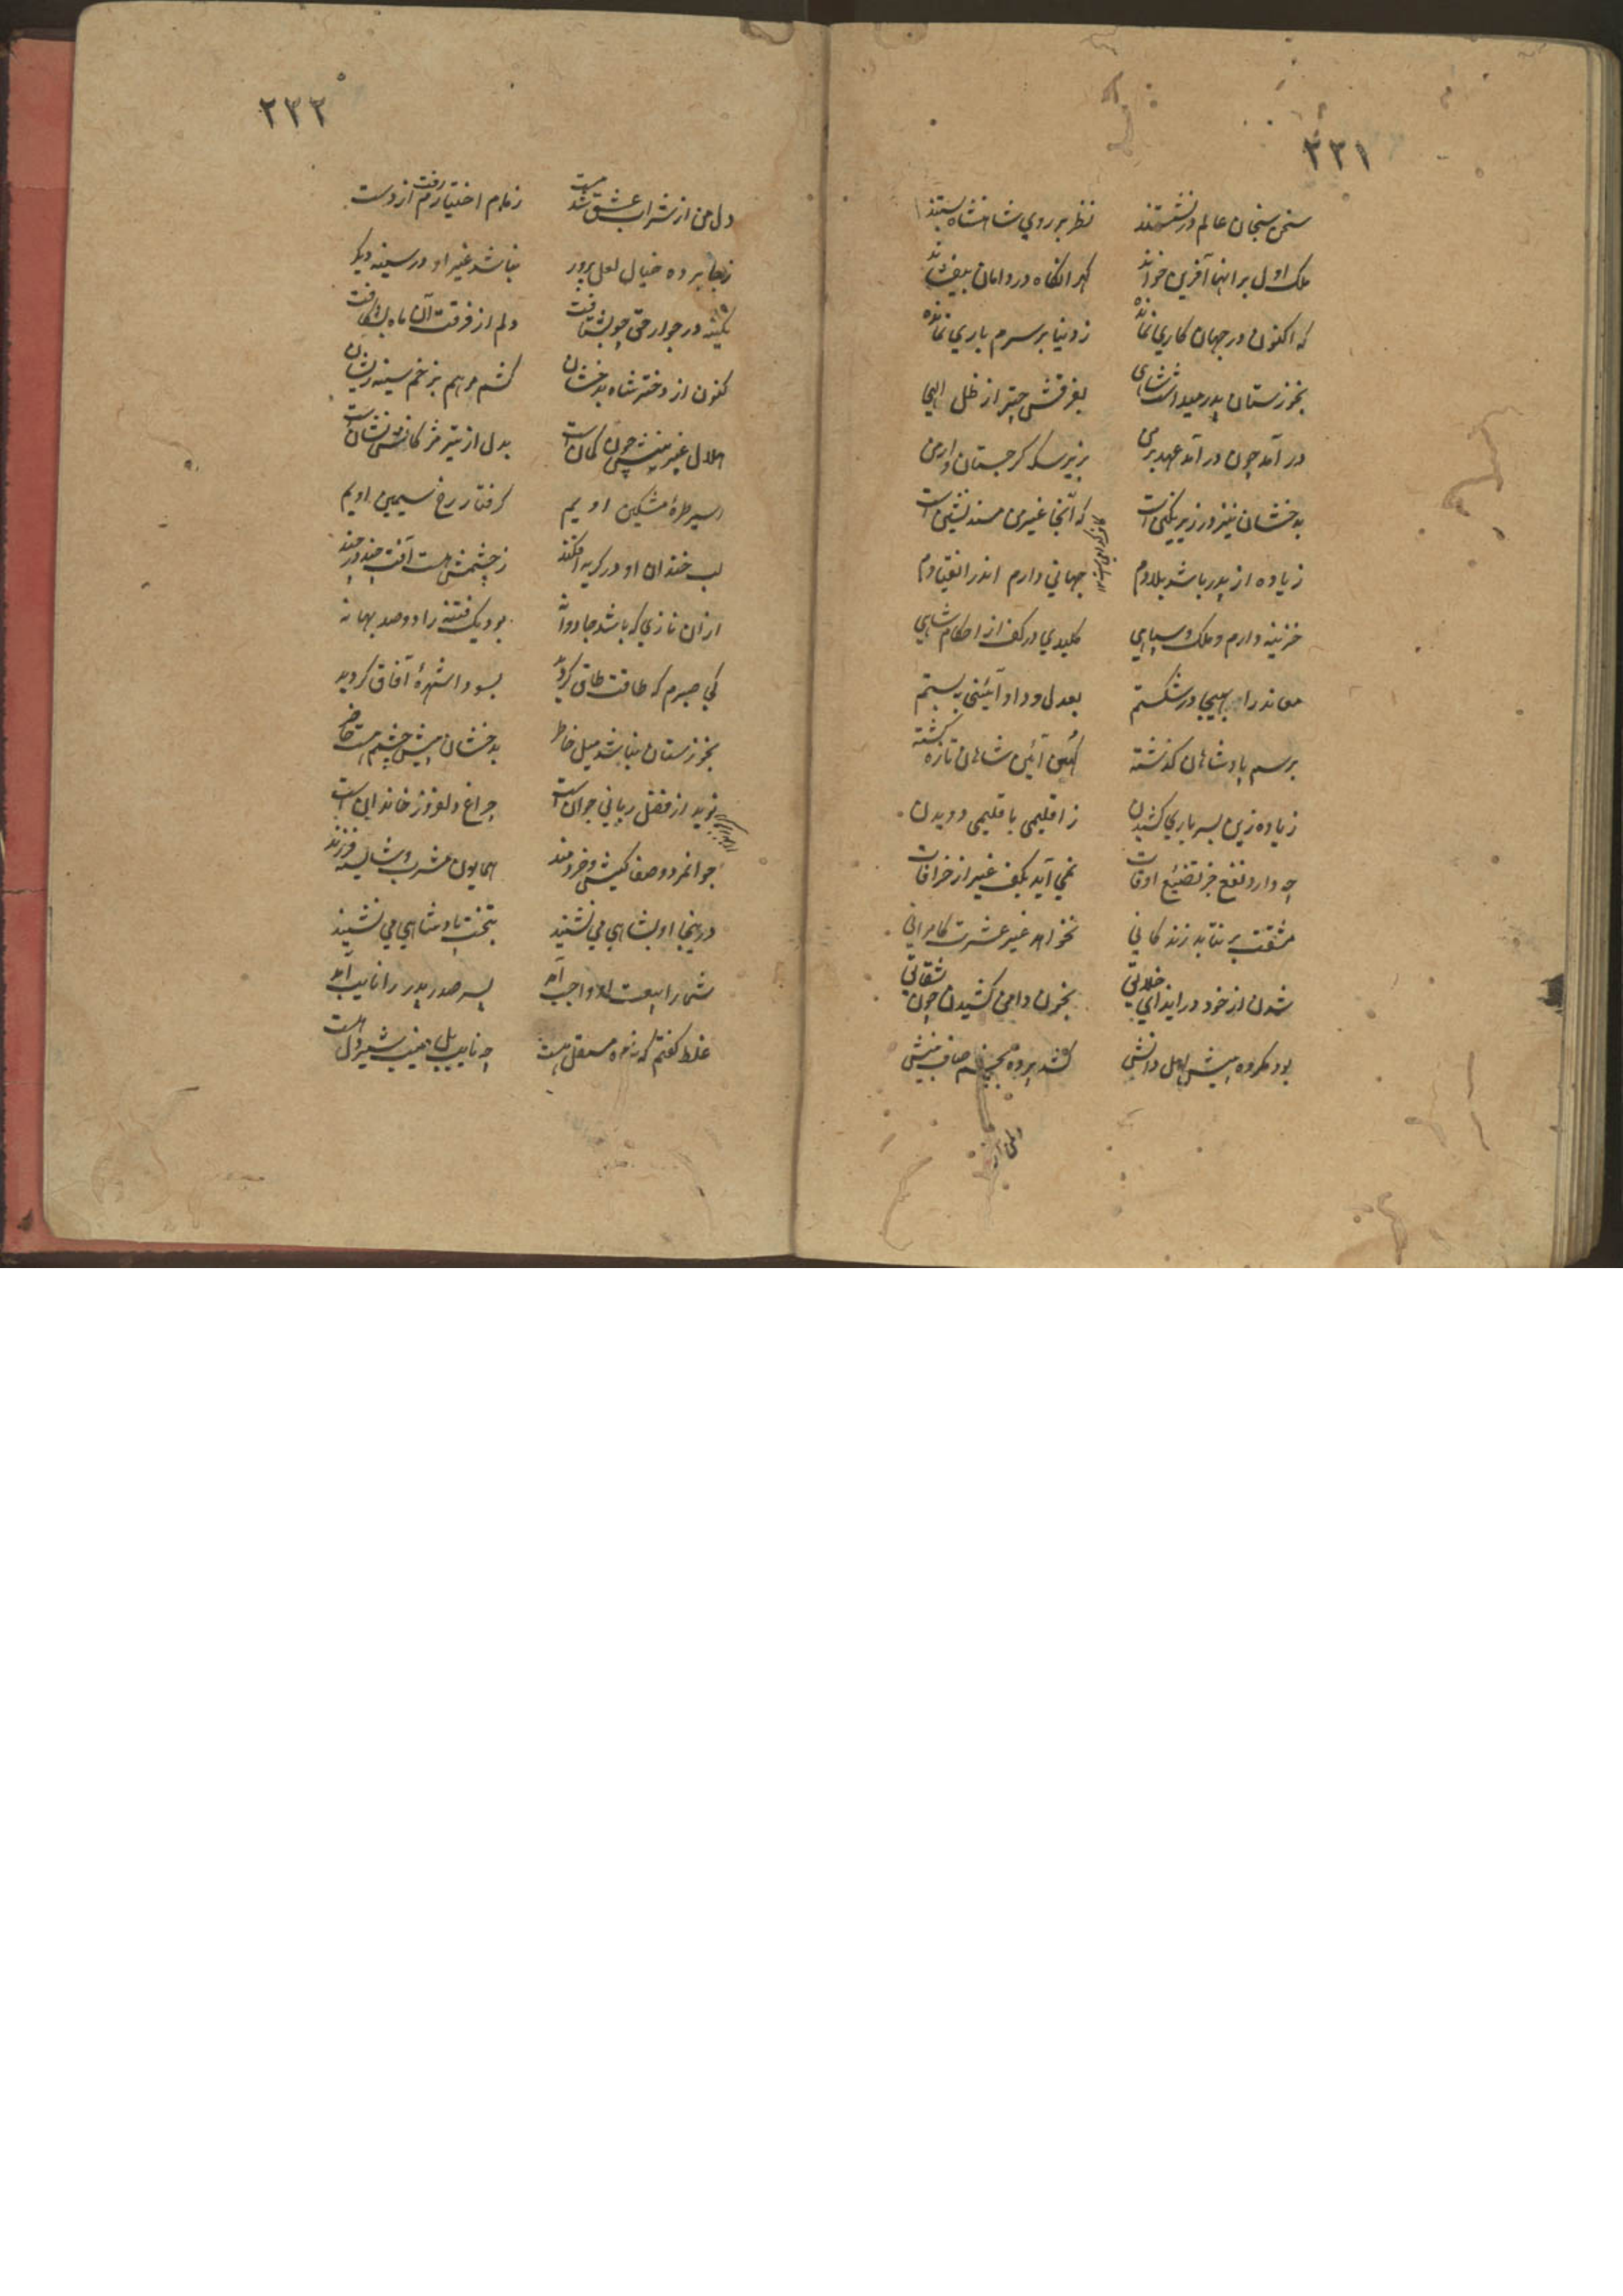 ۲۳۱
سخن سنجان عالم در نشستند نظر بر روی شاهنشاه بستند
ملک اول بر انها آفرین خواند گهر انگاه در دامان بیفشاند
که اکنون در جهان کاری نمانده ز دنیا بر سرم باری نمانده
بخوزستان پدر میداشت شاهی بفرقش چتر از ظل الهی
در آمد چون در آمد عهد بر من بزیر سکه گرجستان و ارمن
بدخشان نیز در زیر نگین است که آنجا غیر من مسند نشین است
زیاده از پدر باشد بلادم جهانی دارم اندر انقیادم
خزینه دارم و ملک و سپاهی کلیدی در کف از احکام شاهی
معاند را بهیجا در شکستم بعدل و داد آئینی ببستم
برسم پادشاهان گذشته کهن آئین شاهان تازه گشته
زیاده زین بسر باری کشیدن ز اقلیمی باقلیمی دویدن
چه دارد نفع جز تضئیع اوقات نمی آید بکف غیر از خرافات
مشقت بر نتابد زندگانی نخواهد غیر عشرت کامرانی
شدن از خود در ایذای خلائق بخون دامن کشیدن چون شقائق
بود مکروه پیش اهل دانش کند پرده صاف بینش
دل من از
۲۳۲
دل من از شراب عشق شد مست زمام اختیارم رفت از دست
ز جا برده خیال لعل پرور نباشد غیر او در سینه دیگر
نگینه در جوار حق چو بشتافت دلم از فرقت آن ماه بشکافت
کنون از دختر شاه بدخشان کشم مرهم بزخم سینه ریشان
هلال عنبرینش چون کمان است بدل از تیر مژگانش نشان است
اسیر طره مشکین اویم گرفتار رخ سیمین اویم
لب خندان او در گریه افکند ز چشمش هست آفت چند در چند
از آن نازی که باشد جادوانه بود یک فتنه را دو صد بهانه
کی صبرم که طاقت طاق گردید بسودا شهرهٔ آفاق گردید
بخوزستان نباشد میل خاطر بدخشان پیش چشمم هست حاضر
نوید از فضل ربانی جوان است چراغ دلفروز خاندان است
جوانمرد و صفا کیش و خردمند همایون مشرب و شایسته فرزند
در اینجا او بشاهی می نشیند بتخت پادشاهی می نشیند
شما را بیعت او واجب آمد پسر صدر پدر را نایب آمد
غلط گفتم که مستقل هست چه نایب بل نهیب شیر دل هست